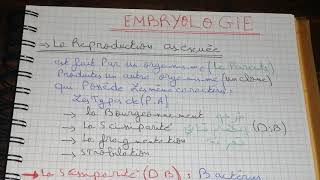 EMBRYOLOGIE
→ La Reproduction asexuée
est fait Par un organisme (le Parents)
Produits un autre organisme (un clone)
qui Possède les même caractères:
Les Types de (R.A)
→ La Bourgeonnement
→ La Scissiparité (D.B)
→ La fragmentation
→ Strobilation
→ La Scissiparité (D.B): Bactéries